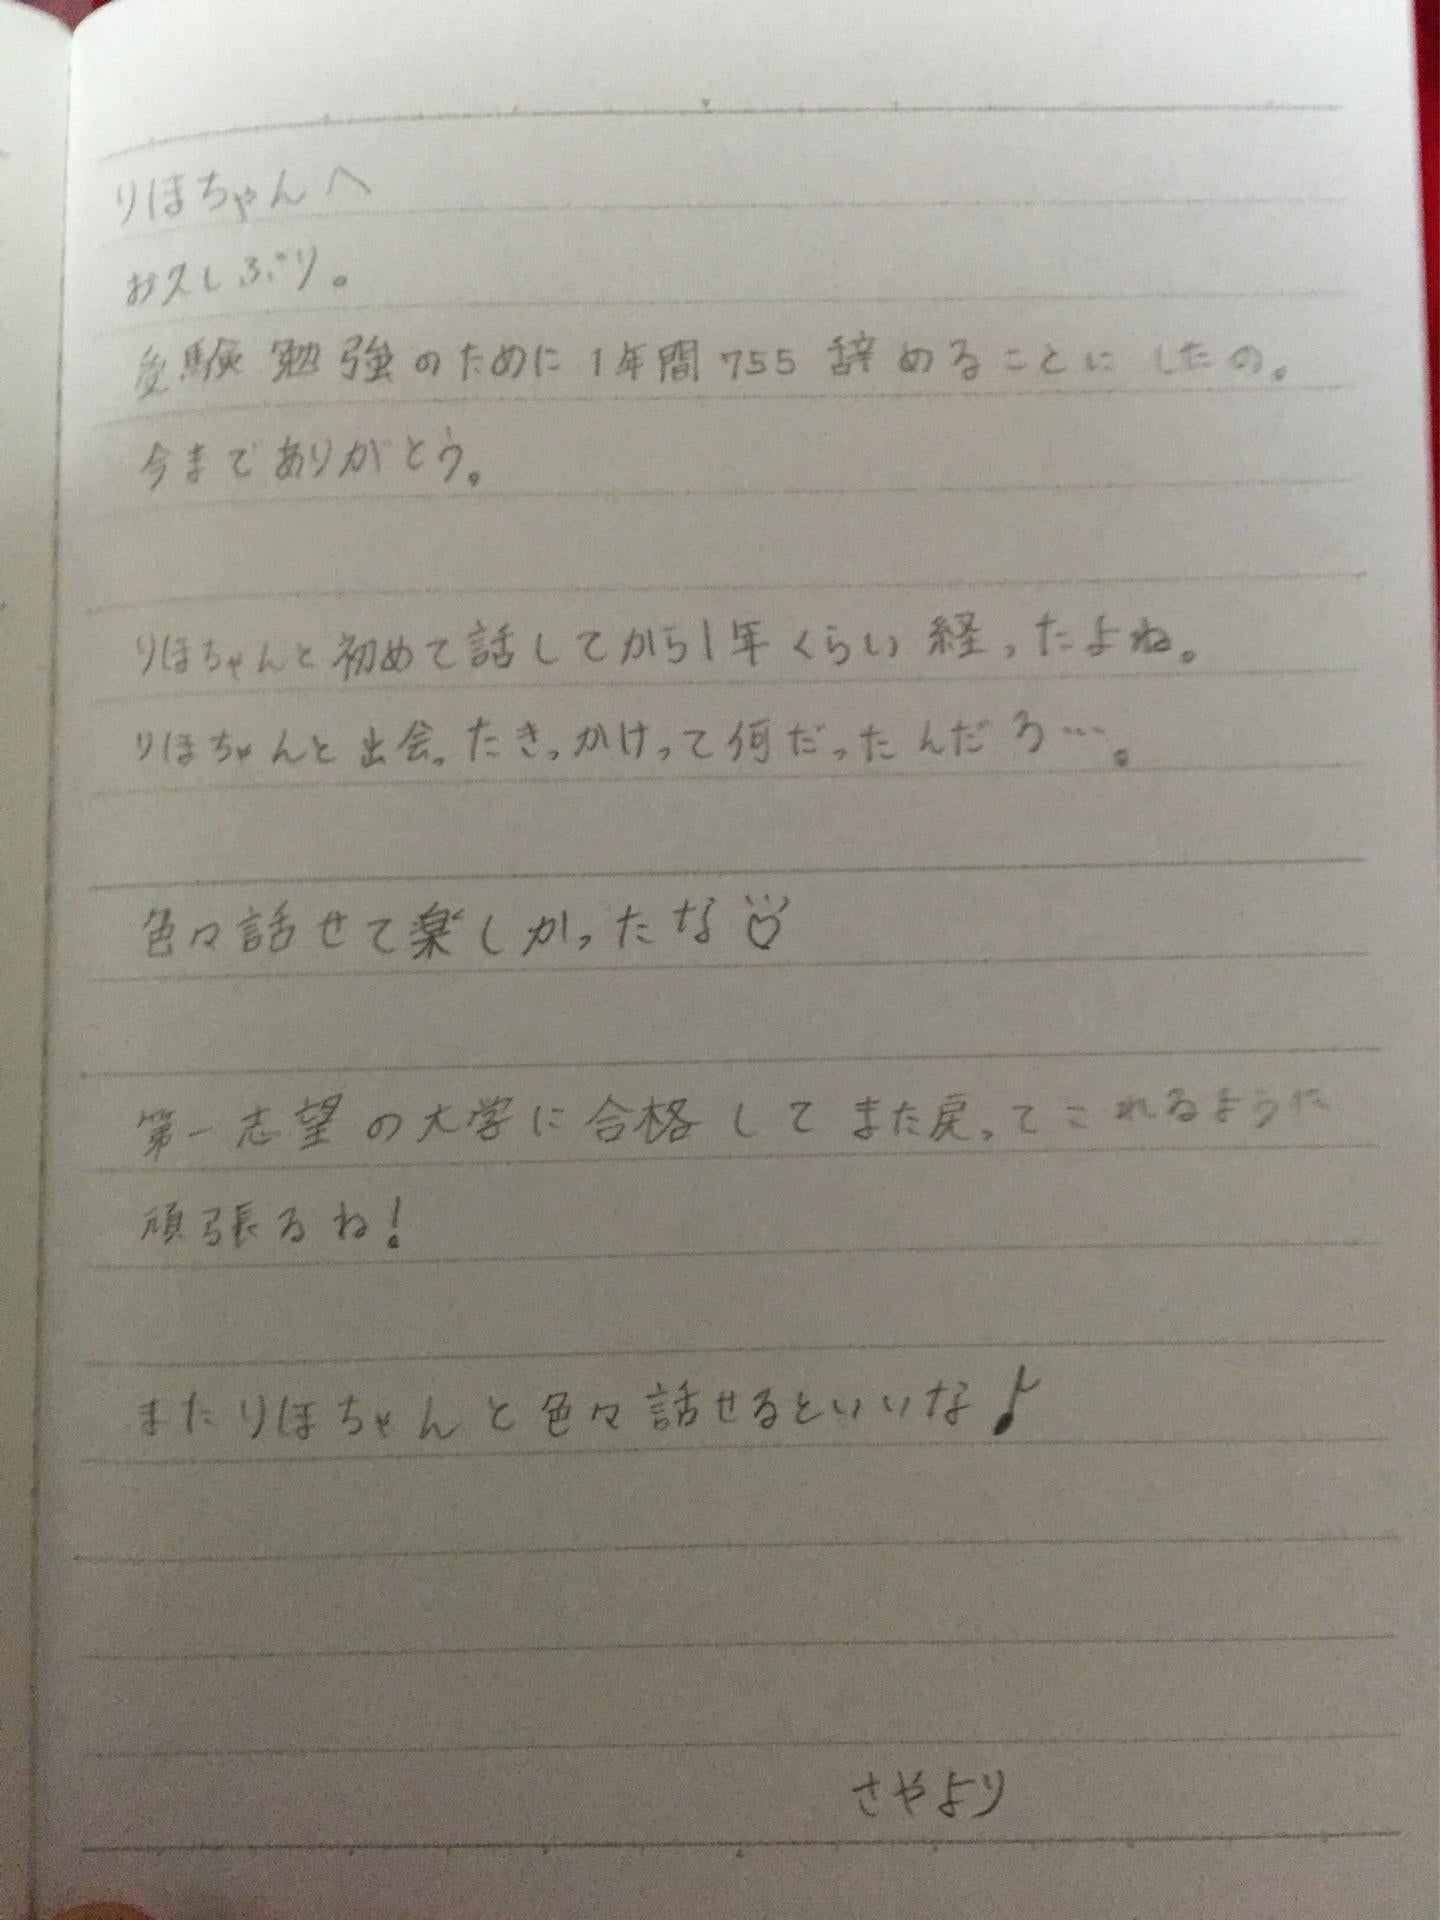 りほちゃんへ
お久しぶり。
受験勉強のために1年間755辞めることにしたの。
今までありがとう。
りほちゃんと初めて話してから1年くらい経ったよね。
りほちゃんと出会ったきっかけって何だったんだろ…。
色々話せて楽しかったな
第一志望の大学に合格してまた戻ってこれるように
頑張るね!
またりほちゃんと色々話せるといいな♪
さやより